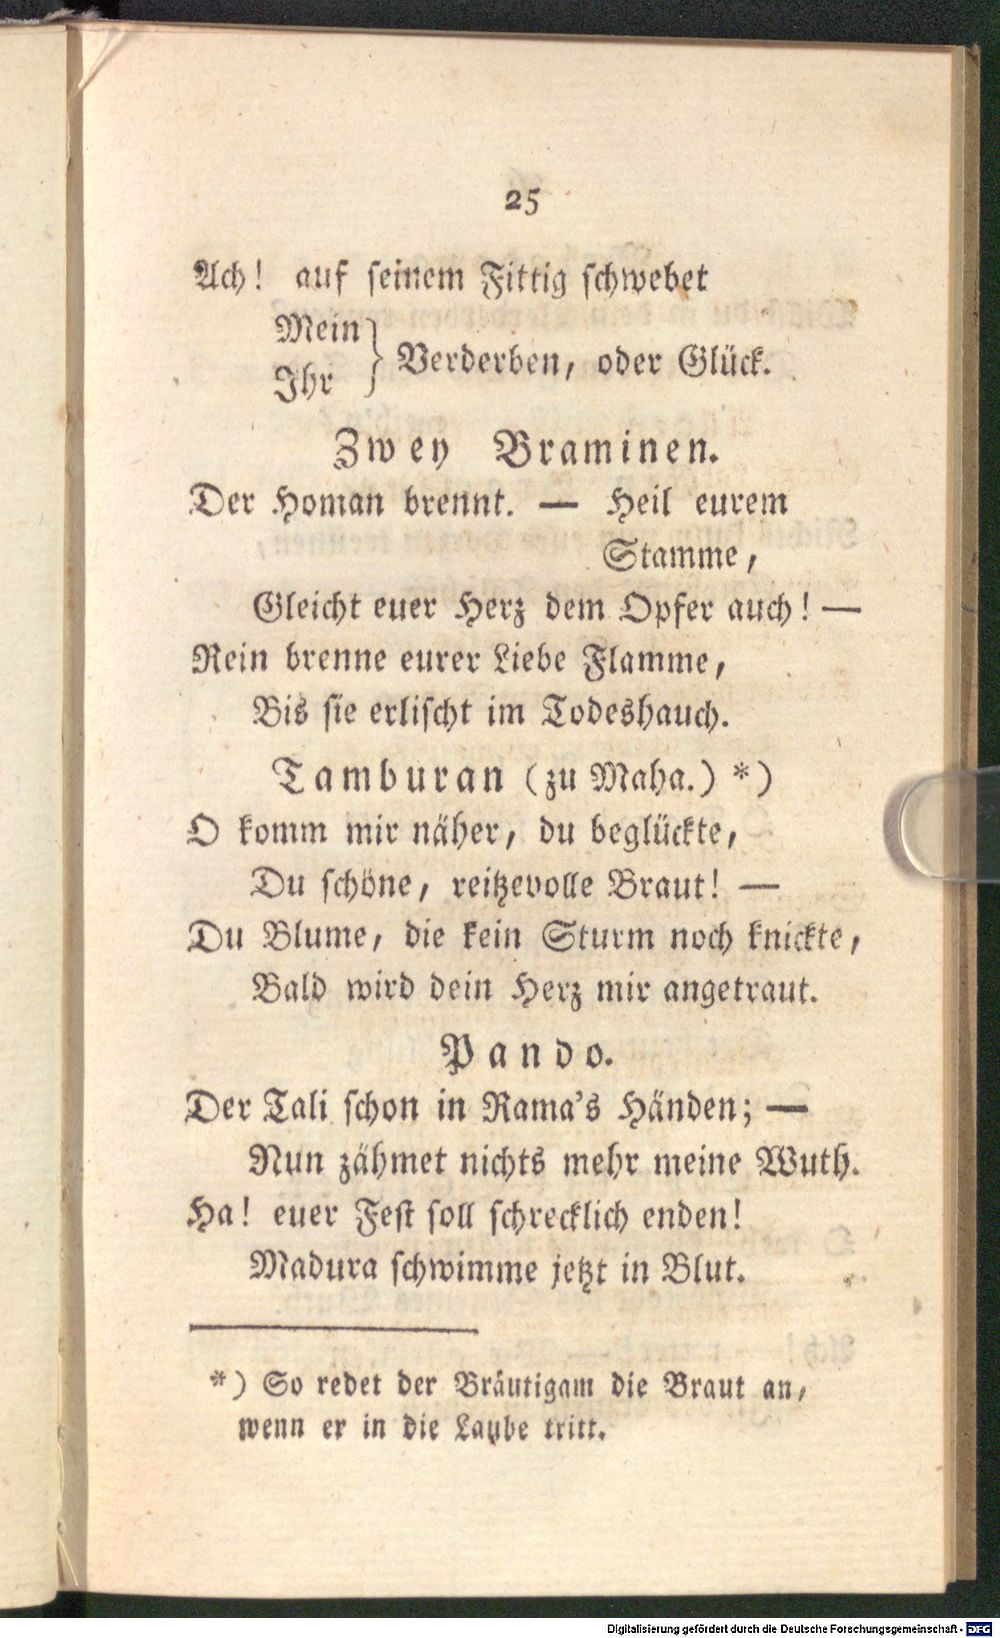 25
Ach! auf seinem Fittig schwebet
Mein
Ihr
} Verderben, oder Glück.
Zwey Braminen.
Der Homan brennt. — Heil eurem
Stamme,
Gleicht euer Herz dem Opfer auch! —
Rein brenne eurer Liebe Flamme,
Bis sie erlischt im Todeshauch.
Tamburan (zu Maha.) *)
O komm mir näher, du beglückte,
Du schöne, reitzevolle Braut! —
Du Blume, die kein Sturm noch knickte,
Bald wird dein Herz mir angetraut.
Pando.
Der Tali schon in Rama's Händen; —
Nun zähmet nichts mehr meine Wuth.
Ha! euer Fest soll schrecklich enden!
Madura schwimme jetzt in Blut.
*) So redet der Bräutigam die Braut an,
wenn er in die Laube tritt.
Digitalisierung gefördert durch die Deutsche Forschungsgemeinschaft - DFG